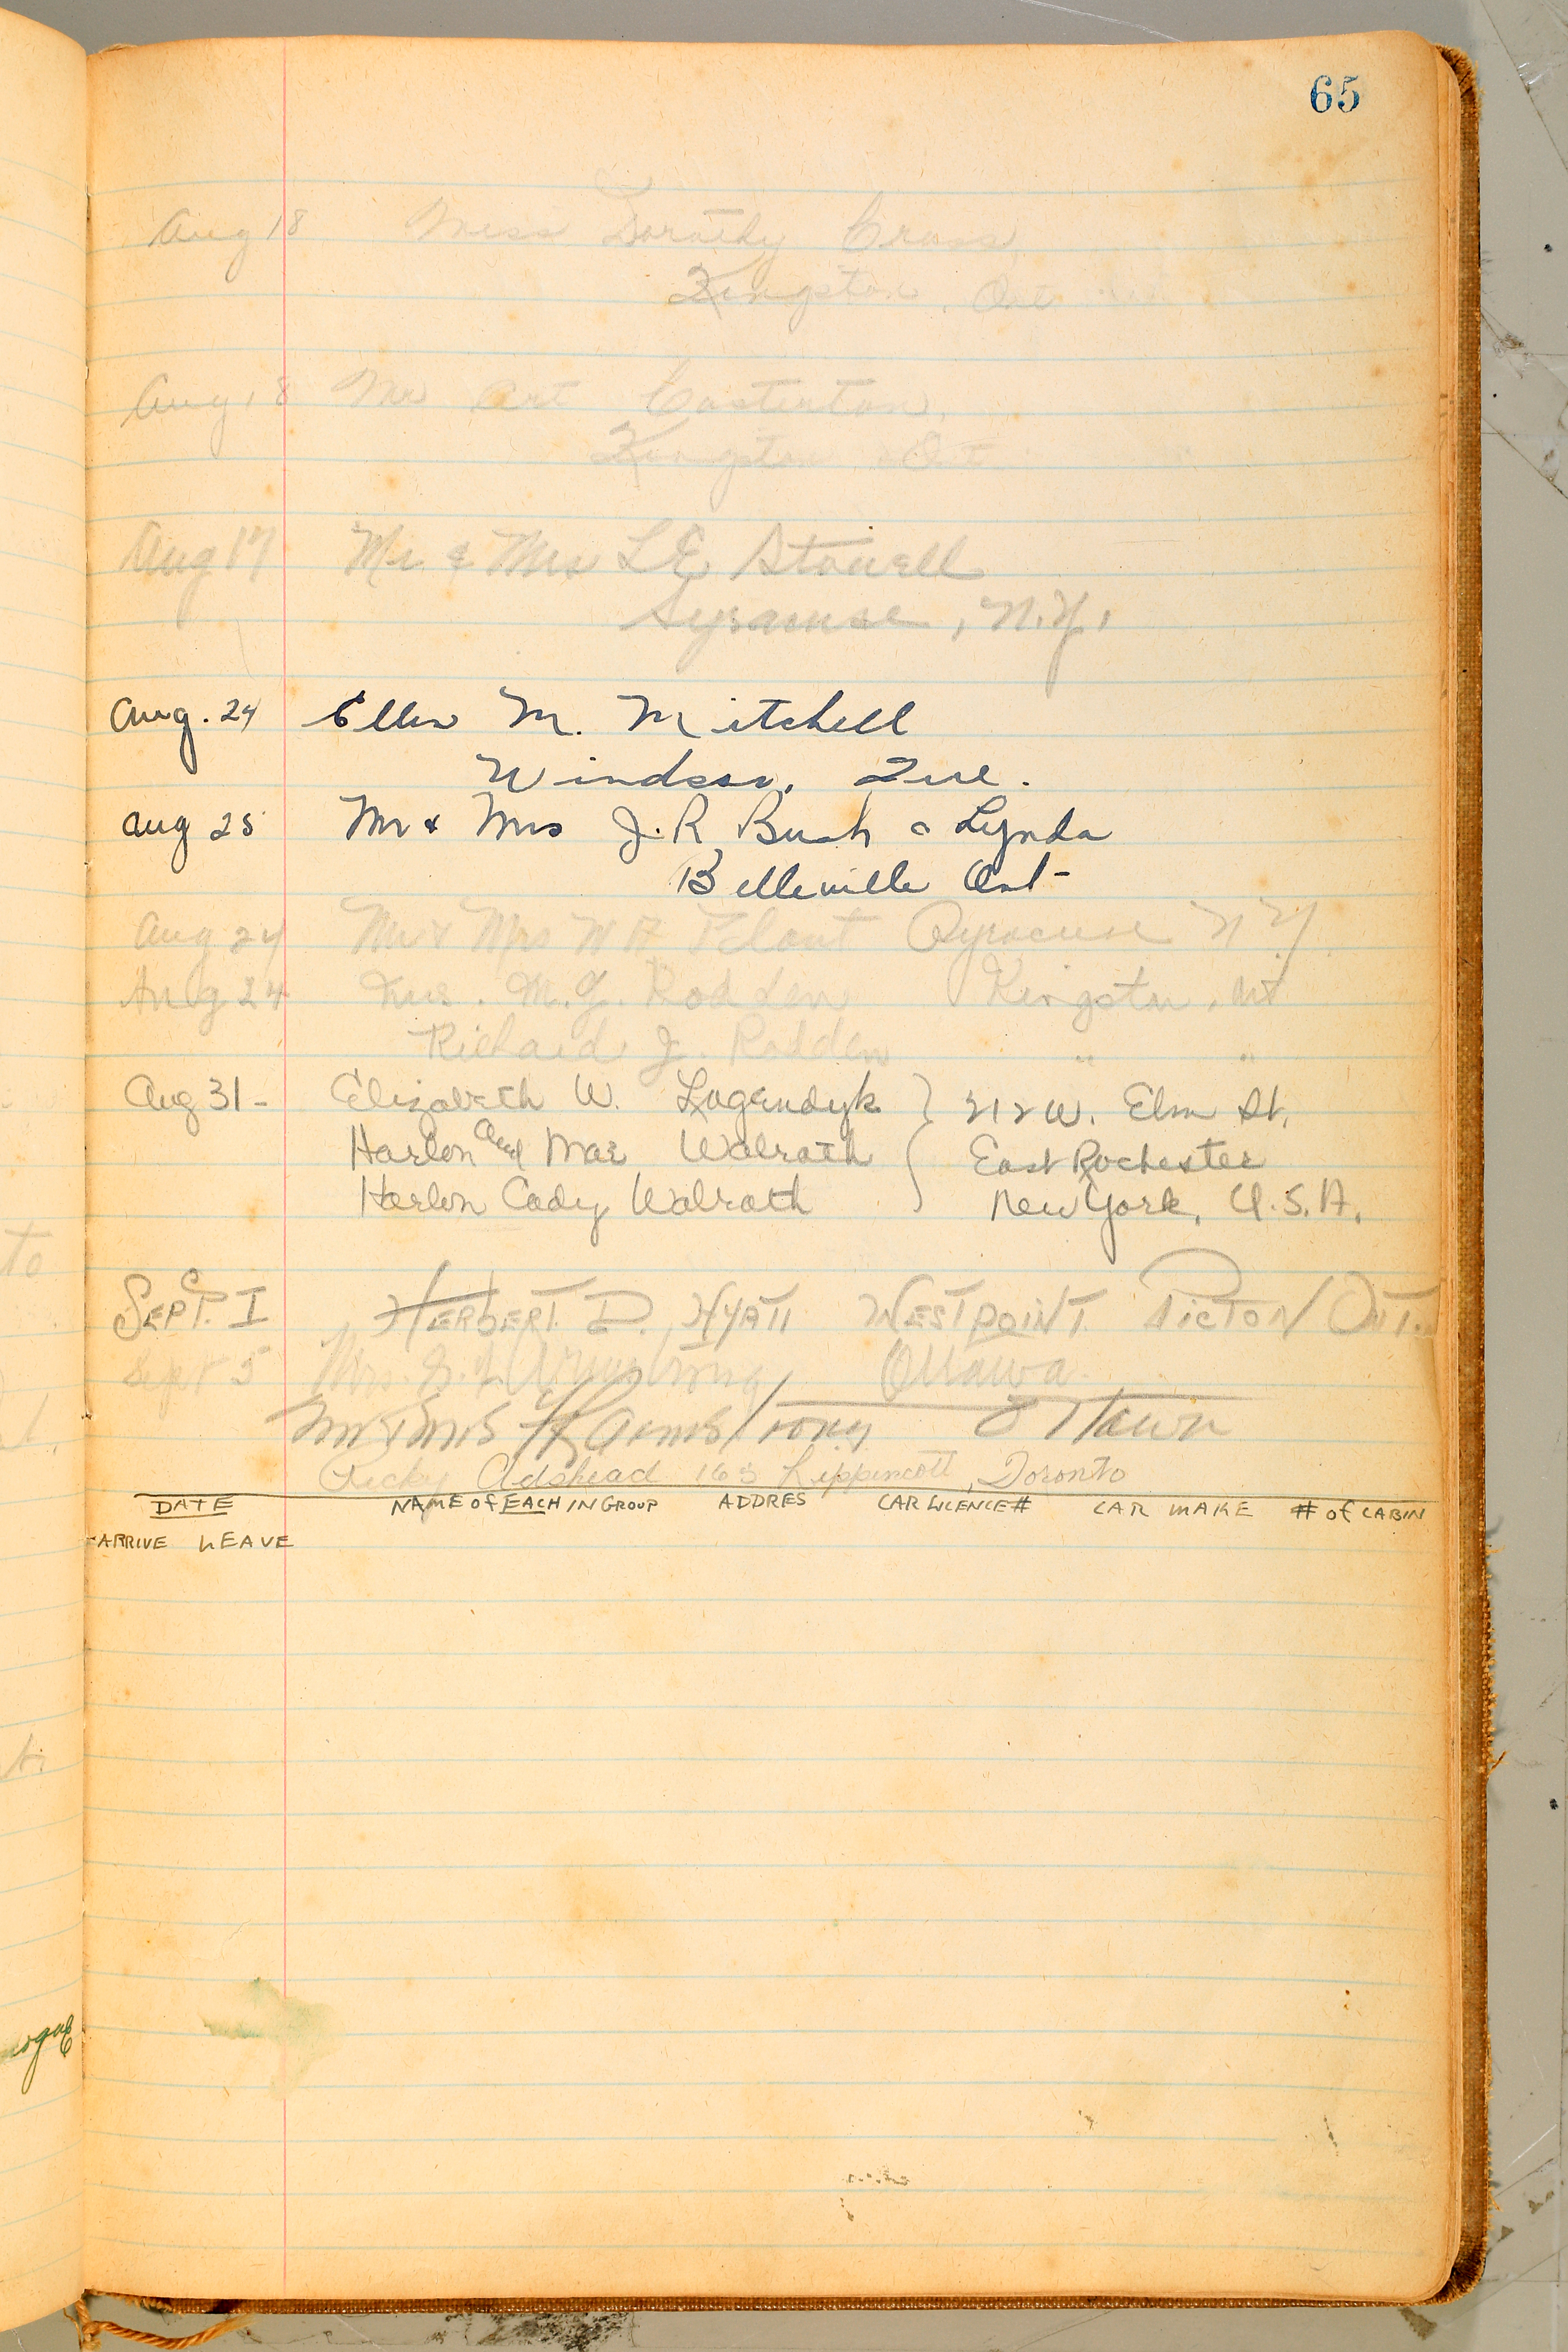 65
Aug 18 Miss Dorothy Cross
Kingston, Ont
Aug 18 Mr Art Casterton,
Kingston Ont
Aug 17 Mr. & Mrs L E Stowell
Syracuse, N.Y.
Aug. 24 Ellen M. Mitchell
Windsor, Que.
Aug 25 Mr & Mrs J. R Bush & Lynda
Belleville Ont-
Aug 24 Mr & Mrs W A Plant Syracuse N Y.
Aug 24 M. J. Rodden Kingston, Ont
Richard J. Rodden " "
Aug 31- Elizabeth W. Lugendyk } 212 W. Elm St.
Harlon and Mae Walrath East Rochester
Harlon Cady Walrath New York, U.S.A.
SEPT. I HERBERT. D. HYATT WESTPOINT. PICTON ONT.
Sept 5 Mrs. Armstrong Ottawa.
Mr & Mrs Armstrong Ottawa
Adshead 165 Lippincott, Toronto
DATE NAME of EACH IN GROUP ADDRES CAR LICENCE # CAR MAKE # of CABIN
ARRIVE LEAVE